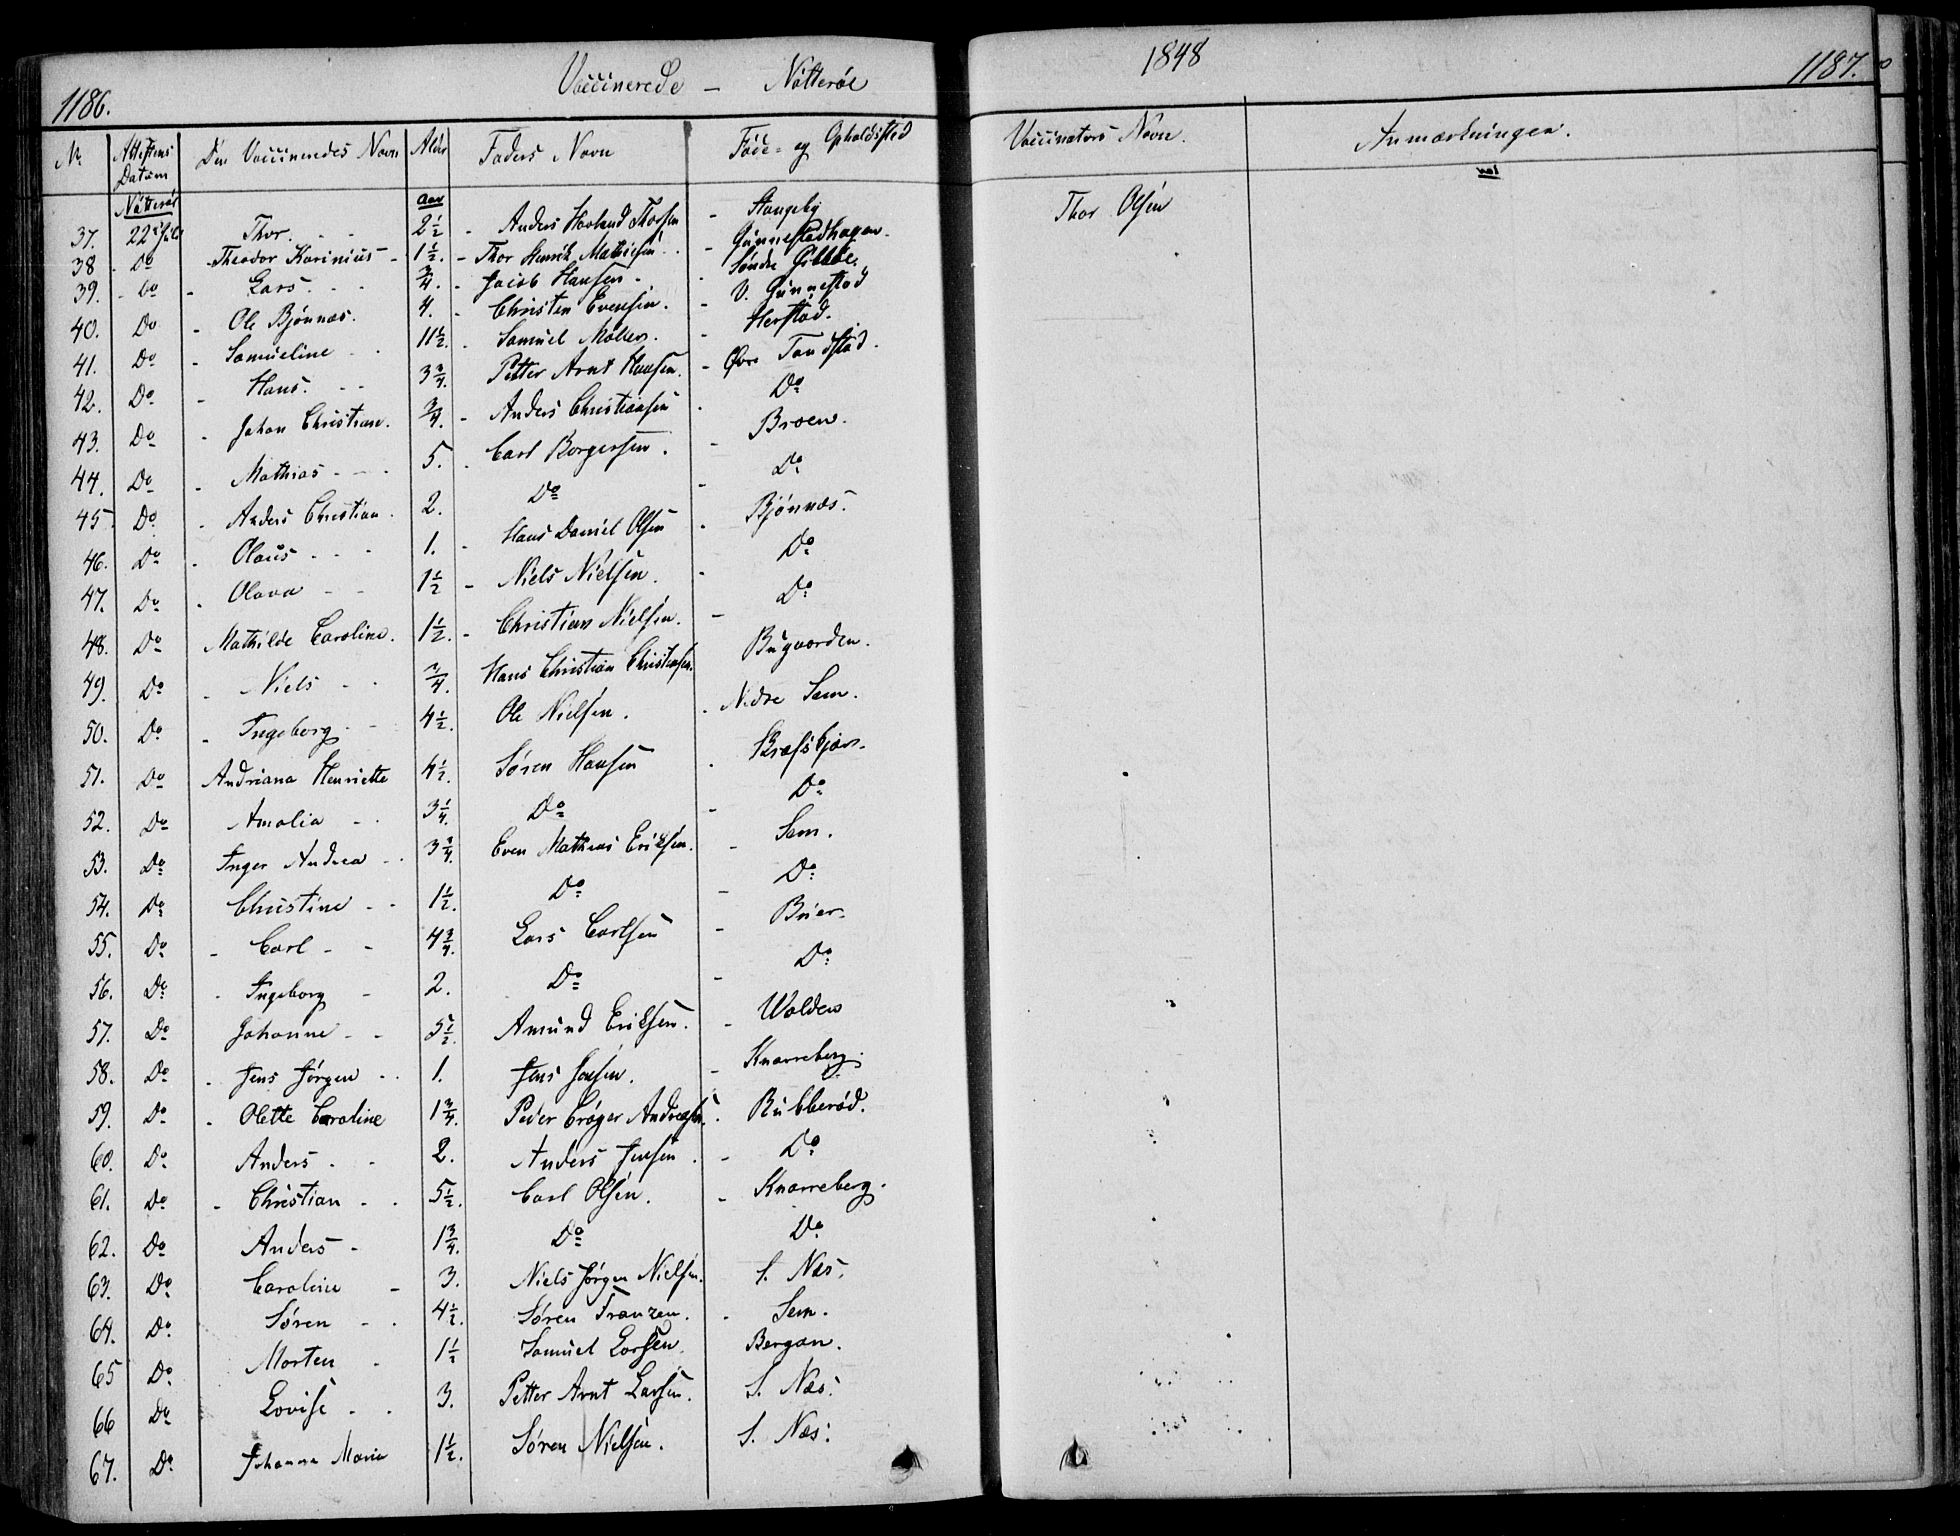 1186. Vaccinerede – Nötteröe
Nr. Attestens Datum Den Vaccineredes Navn Alder Faders Navn Føde- og Opholdssted
Nötteröe Aar
37. 22 Thor. 2 1/2 Anders Thorsen Stangeby
38 Do Theodor Karinius 1 1/2. Thor Henrik Mathisen Gunnestadhagen.
39. Do Lars 3/4. Jacob Hansen Søndre
40. Do Ole Bjønnæs. 4. Christen Evensen. V. Gunnestad
41. Do Samueline 11 1/2. Samuel Møller. Herstad.
42. Do Hans. 3 3/4. Petter Arnt Hansen. Øvre Tandstad.
43. Do Johan Christian. 3/4. Anders Christiansen Do
44. Do Mathias 5. Carl Borgersen. Broen.
45 Do Anders Christian. 2. Do Do
46. Do Olaus 1. Hans Daniel Olsen Bjønnæs.
47. Do Olava 1 1/2 Niels Nielsen. Do
48. Do Mathilde Caroline. 1 1/2. Christian Nielsen. Do
49. Do Niels 3/4. Hans Christian Christensen. Bugaarden.
50. Do Ingeborg 4 1/2. Ole Nielsen. Nedre Sem.
51. Do Andriana Henriette 4 1/2. Søren Hansen
52. Do Amalia 3 1/4. Do Do
53. Do Inger Andrea 3 3/4. Even Mathias Eriksen. Sem.
54. Do Christine 1 1/2. Do Do
55. Do Carl 4 3/4. Lars Carlsen Buer.
56. Do Ingeborg 2. Do Do
57. Do Johanne 5 1/2. Amund Eriksen. Wolden
58. Do Jens Jørgen 1. Jens Jensen. Knarreberg.
59. Do Olette Caroline 1 3/4. Peder Crøger Andreasen. Rubberød.
60. Do Anders 2. Anders Jensen Do
61. Do Christian 5 1/2. Carl Olsen. Knarreberg.
62. Do Anders 1 3/4. Do Do
63. Do Caroline 3. Niels Jørgen Nielsen. S. Næs.
64. Do Søren 4 1/2. Søren Franzen. Sem.
65 Do Morten 1 1/2 Samuel Larsen. Bergan.
66 Do Lovise 3. Petter Arnt Larsen. S. Næs.
67. Do Johanna Maria 1 1/2. Søren Nielsen. S. Næs.
1848 1187.
Vaccinators Navn. Anmærkninger.
Thor Olsen